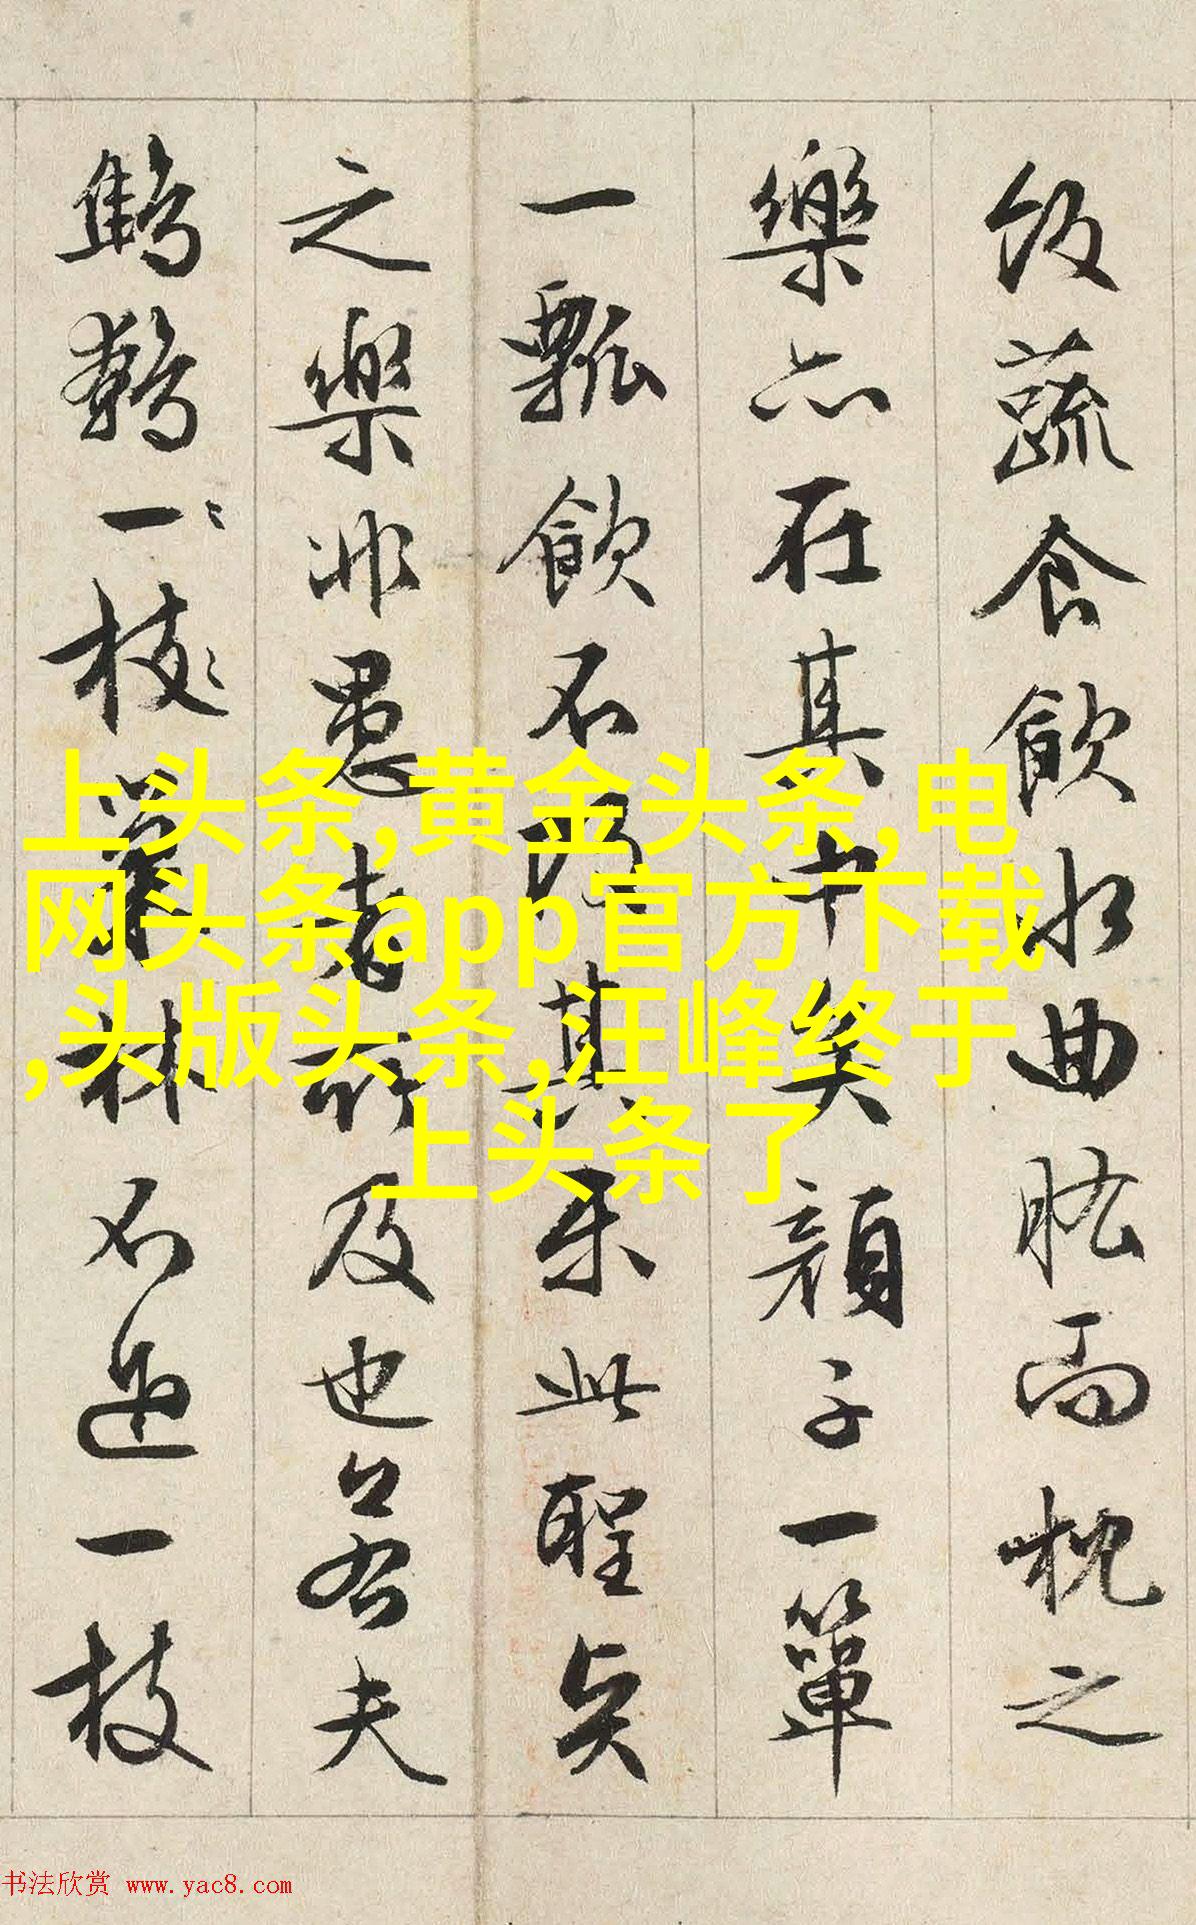 飯蔬食飲水曲肱而枕之
樂亦在其中矣顏子一簞
一瓢飲不改其樂此聖賢
之樂非愚者所及也若夫
鷦鷯一枝巢林不過一枝
上头条,黄金头条,电
网头条app官方下载
,头版头条,汪峰终于
上头条了
书法欣赏 www.yac8.com